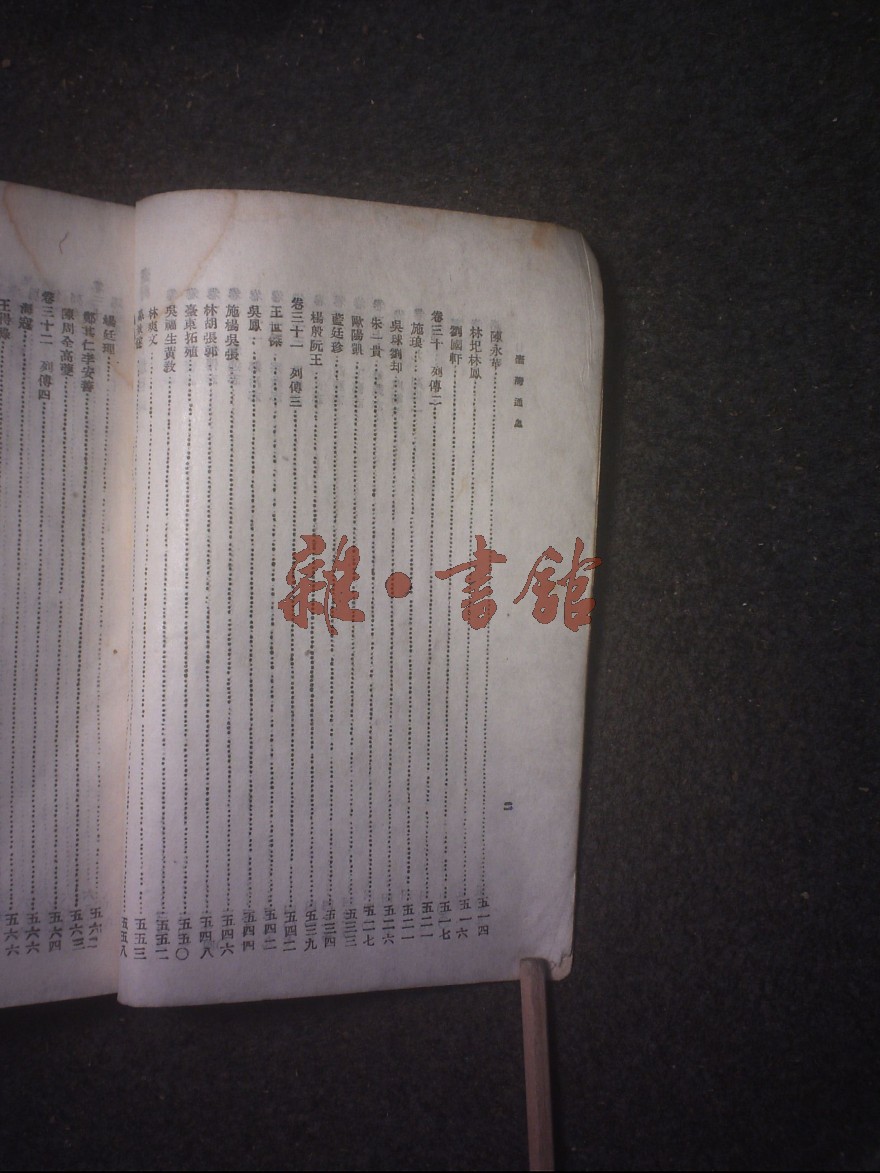 臺灣通史
二
陳永華……五一四
林圯林鳳……五一六
劉國軒……五一七
卷三十 列傳二……五二一
施琅……五二一
吳球劉却……五二六
朱一貴……五二七
歐陽凱……五三三
藍廷珍……五三四
楊殷阮王……五三九
卷三十一 列傳三……五四二
王世傑……五四二
吳鳳……五四四
施楊吳張……五四六
林胡張郭……五四八
臺東拓殖……五五〇
吳福生黃教……五五二
林爽文……五五三
五五八
楊廷理……五六二
鄭其仁李安善……五六三
陳周全高夔……五六四
卷三十二 列傳四……五六六
海寇……五六六
王得祿
雜·書館